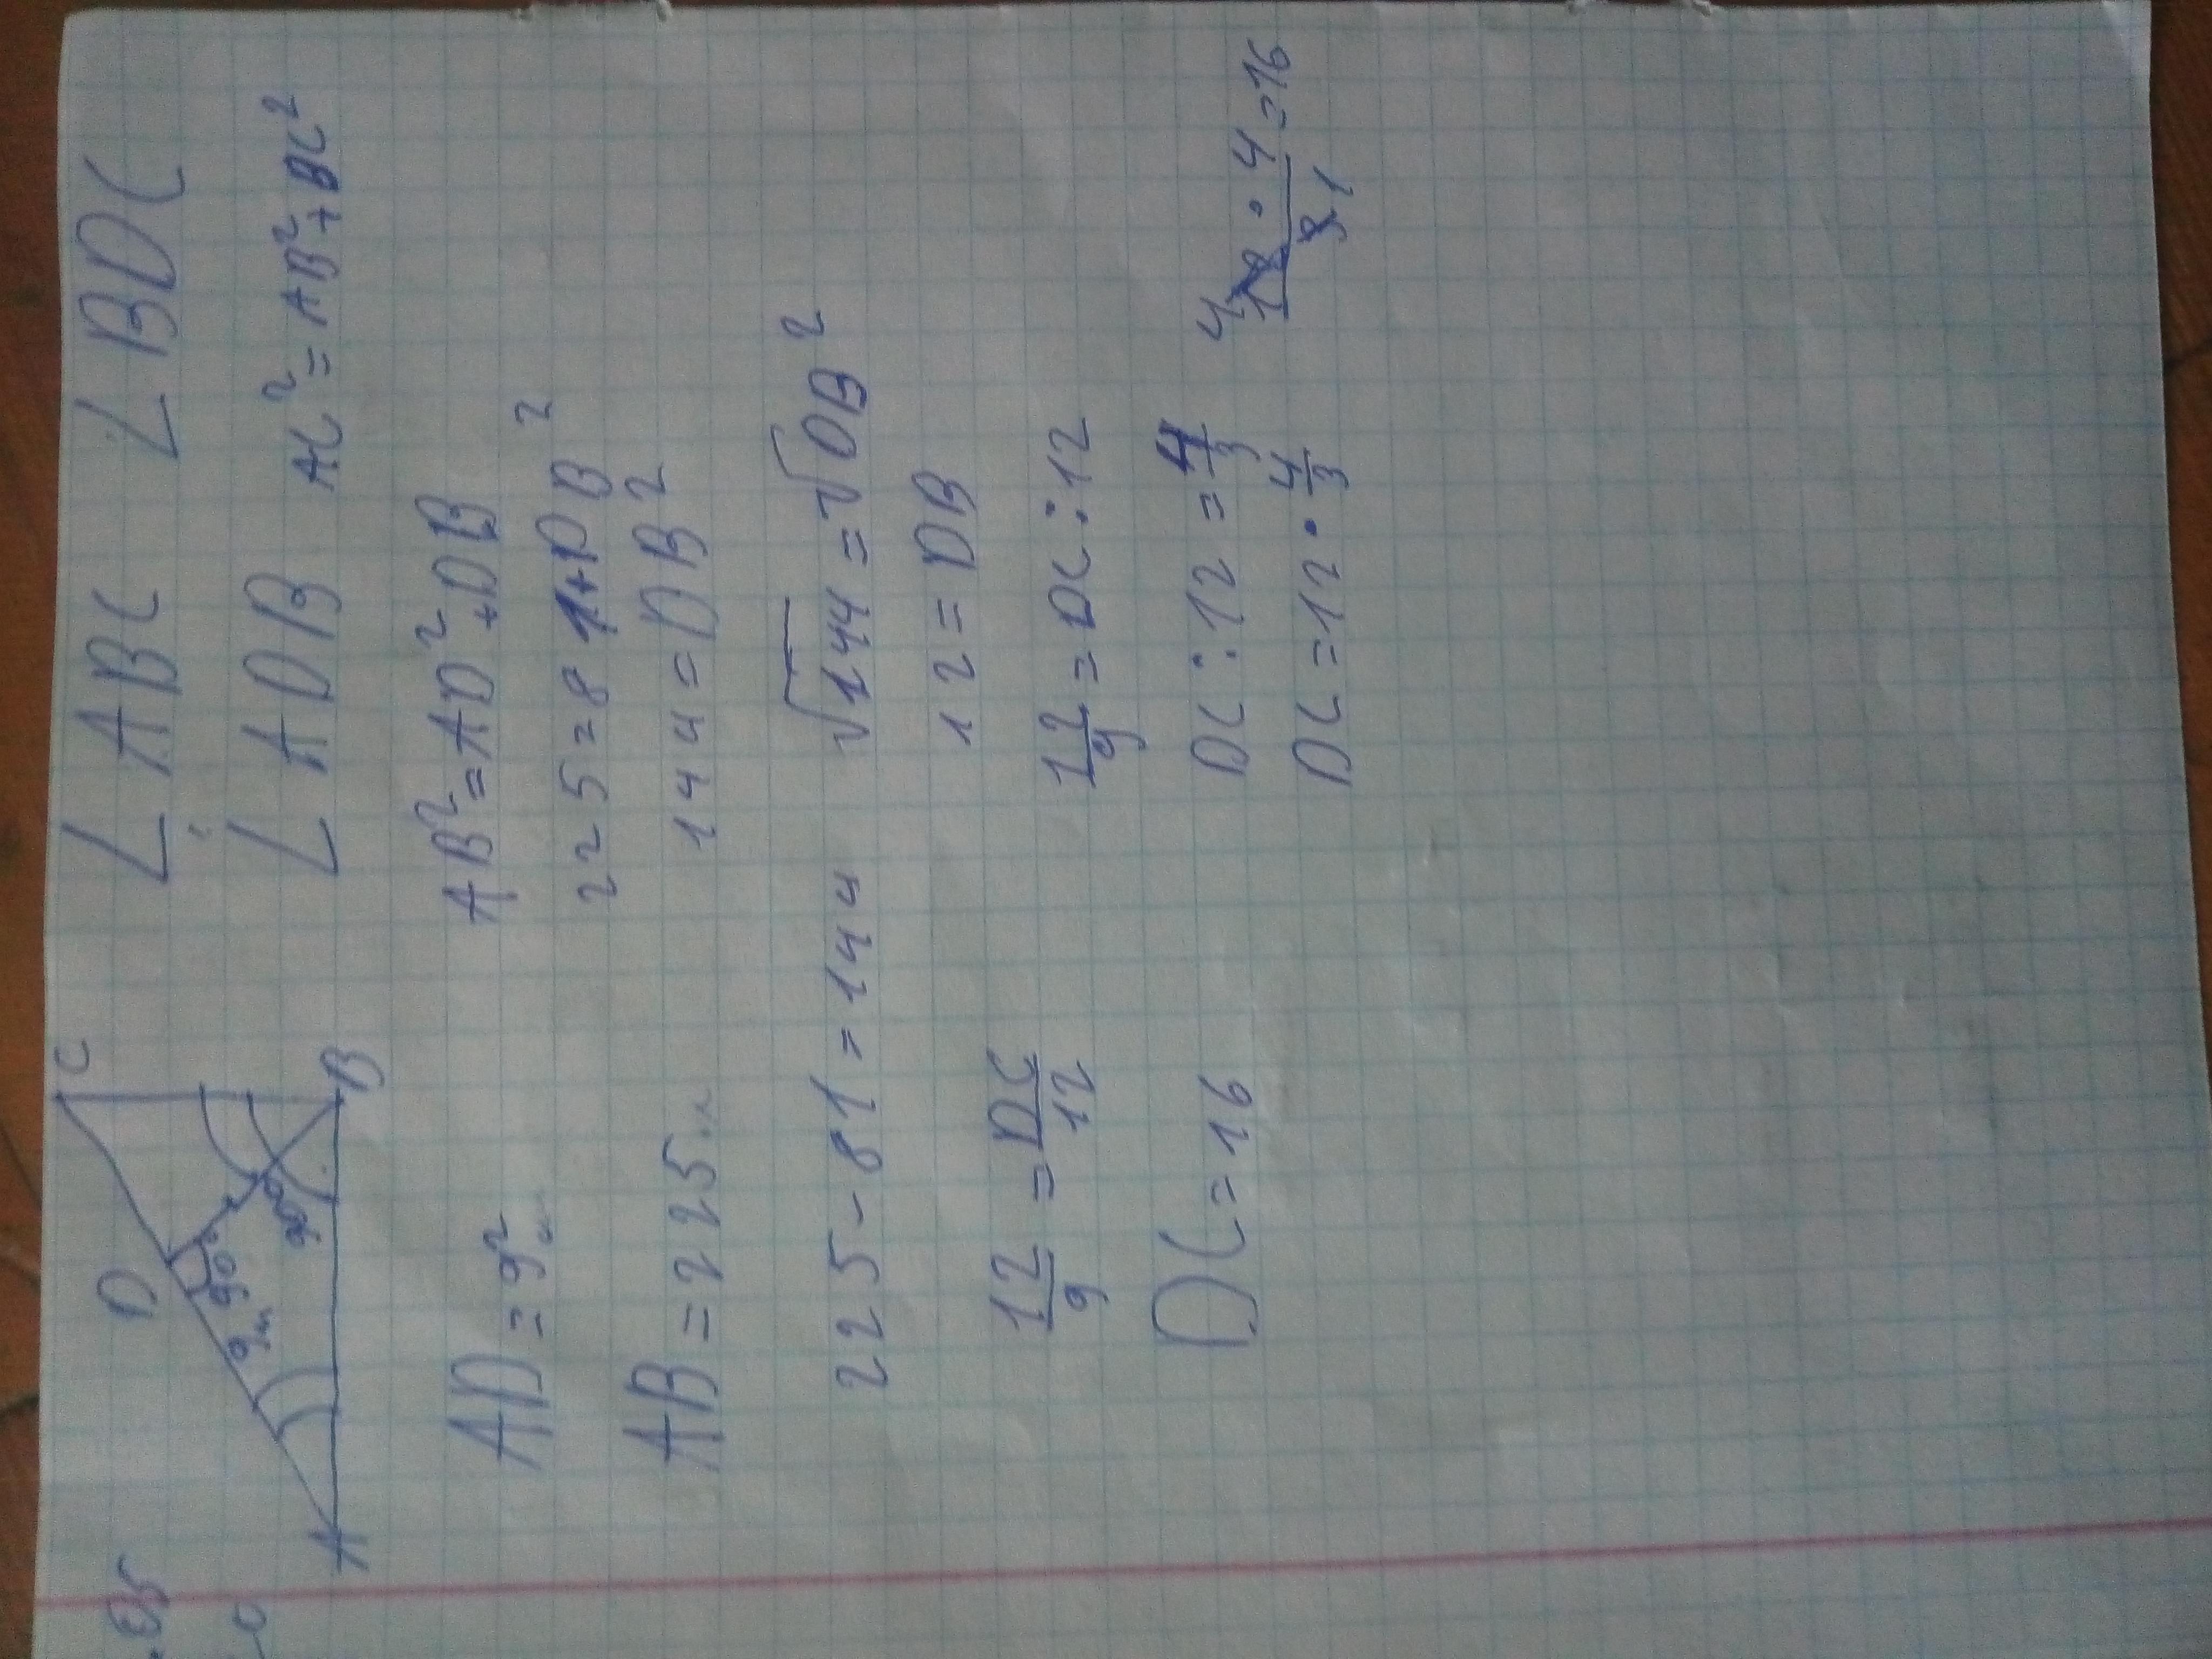 ∠ABC ∠BDC
∠ADB AC² = AB² + BC²
C
D
9м 90°
90°
A B
AD = 9²
AB² = AD² + DB
225 = 81 + DB²
AB = 225
144 = DB²
225 - 81 = 144
√144 = √DB²
12 = DB
12/9 = DC/12
12/9 = DC : 12
DC = 16
DC : 12 = 4/3
DC = 12 · 4/3
4
12 · 4/3 = 16
1